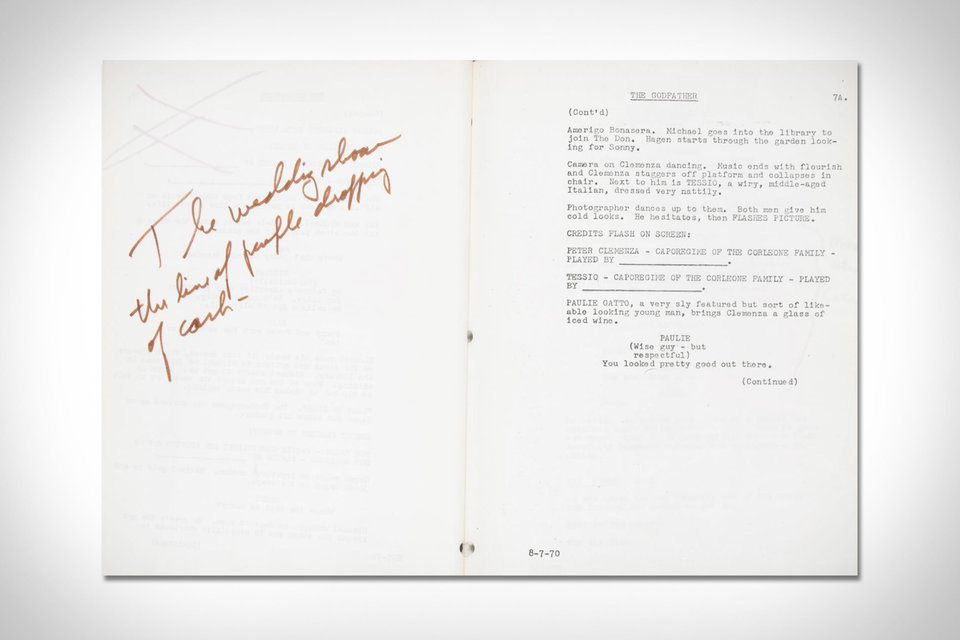 The wedding show
the line of people dropping
of cash-
THE GODFATHER
7A.
(Cont'd)
Amerigo Bonasera. Michael goes into the library to
join The Don. Hagen starts through the garden look-
ing for Sonny.
Camera on Clemenza dancing. Music ends with flourish
and Clemenza staggers off platform and collapses in
chair. Next to him is TESSIO, a wiry, middle-aged
Italian, dressed very nattily.
Photographer dances up to them. Both men give him
cold looks. He hesitates, then FLASHES PICTURE.
CREDITS FLASH ON SCREEN:
PETER CLEMENZA - CAPOREGIME OF THE CORLEONE FAMILY -
PLAYED BY ____________________.
TESSIO - CAPOREGIME OF THE CORLEONE FAMILY - PLAYED
BY ______________________.
PAULIE GATTO, a very sly featured but sort of like-
able looking young man, brings Clemenza a glass of
iced wine.
PAULIE
(Wise guy - but
respectful)
You looked pretty good out there.
(Continued)
8-7-70